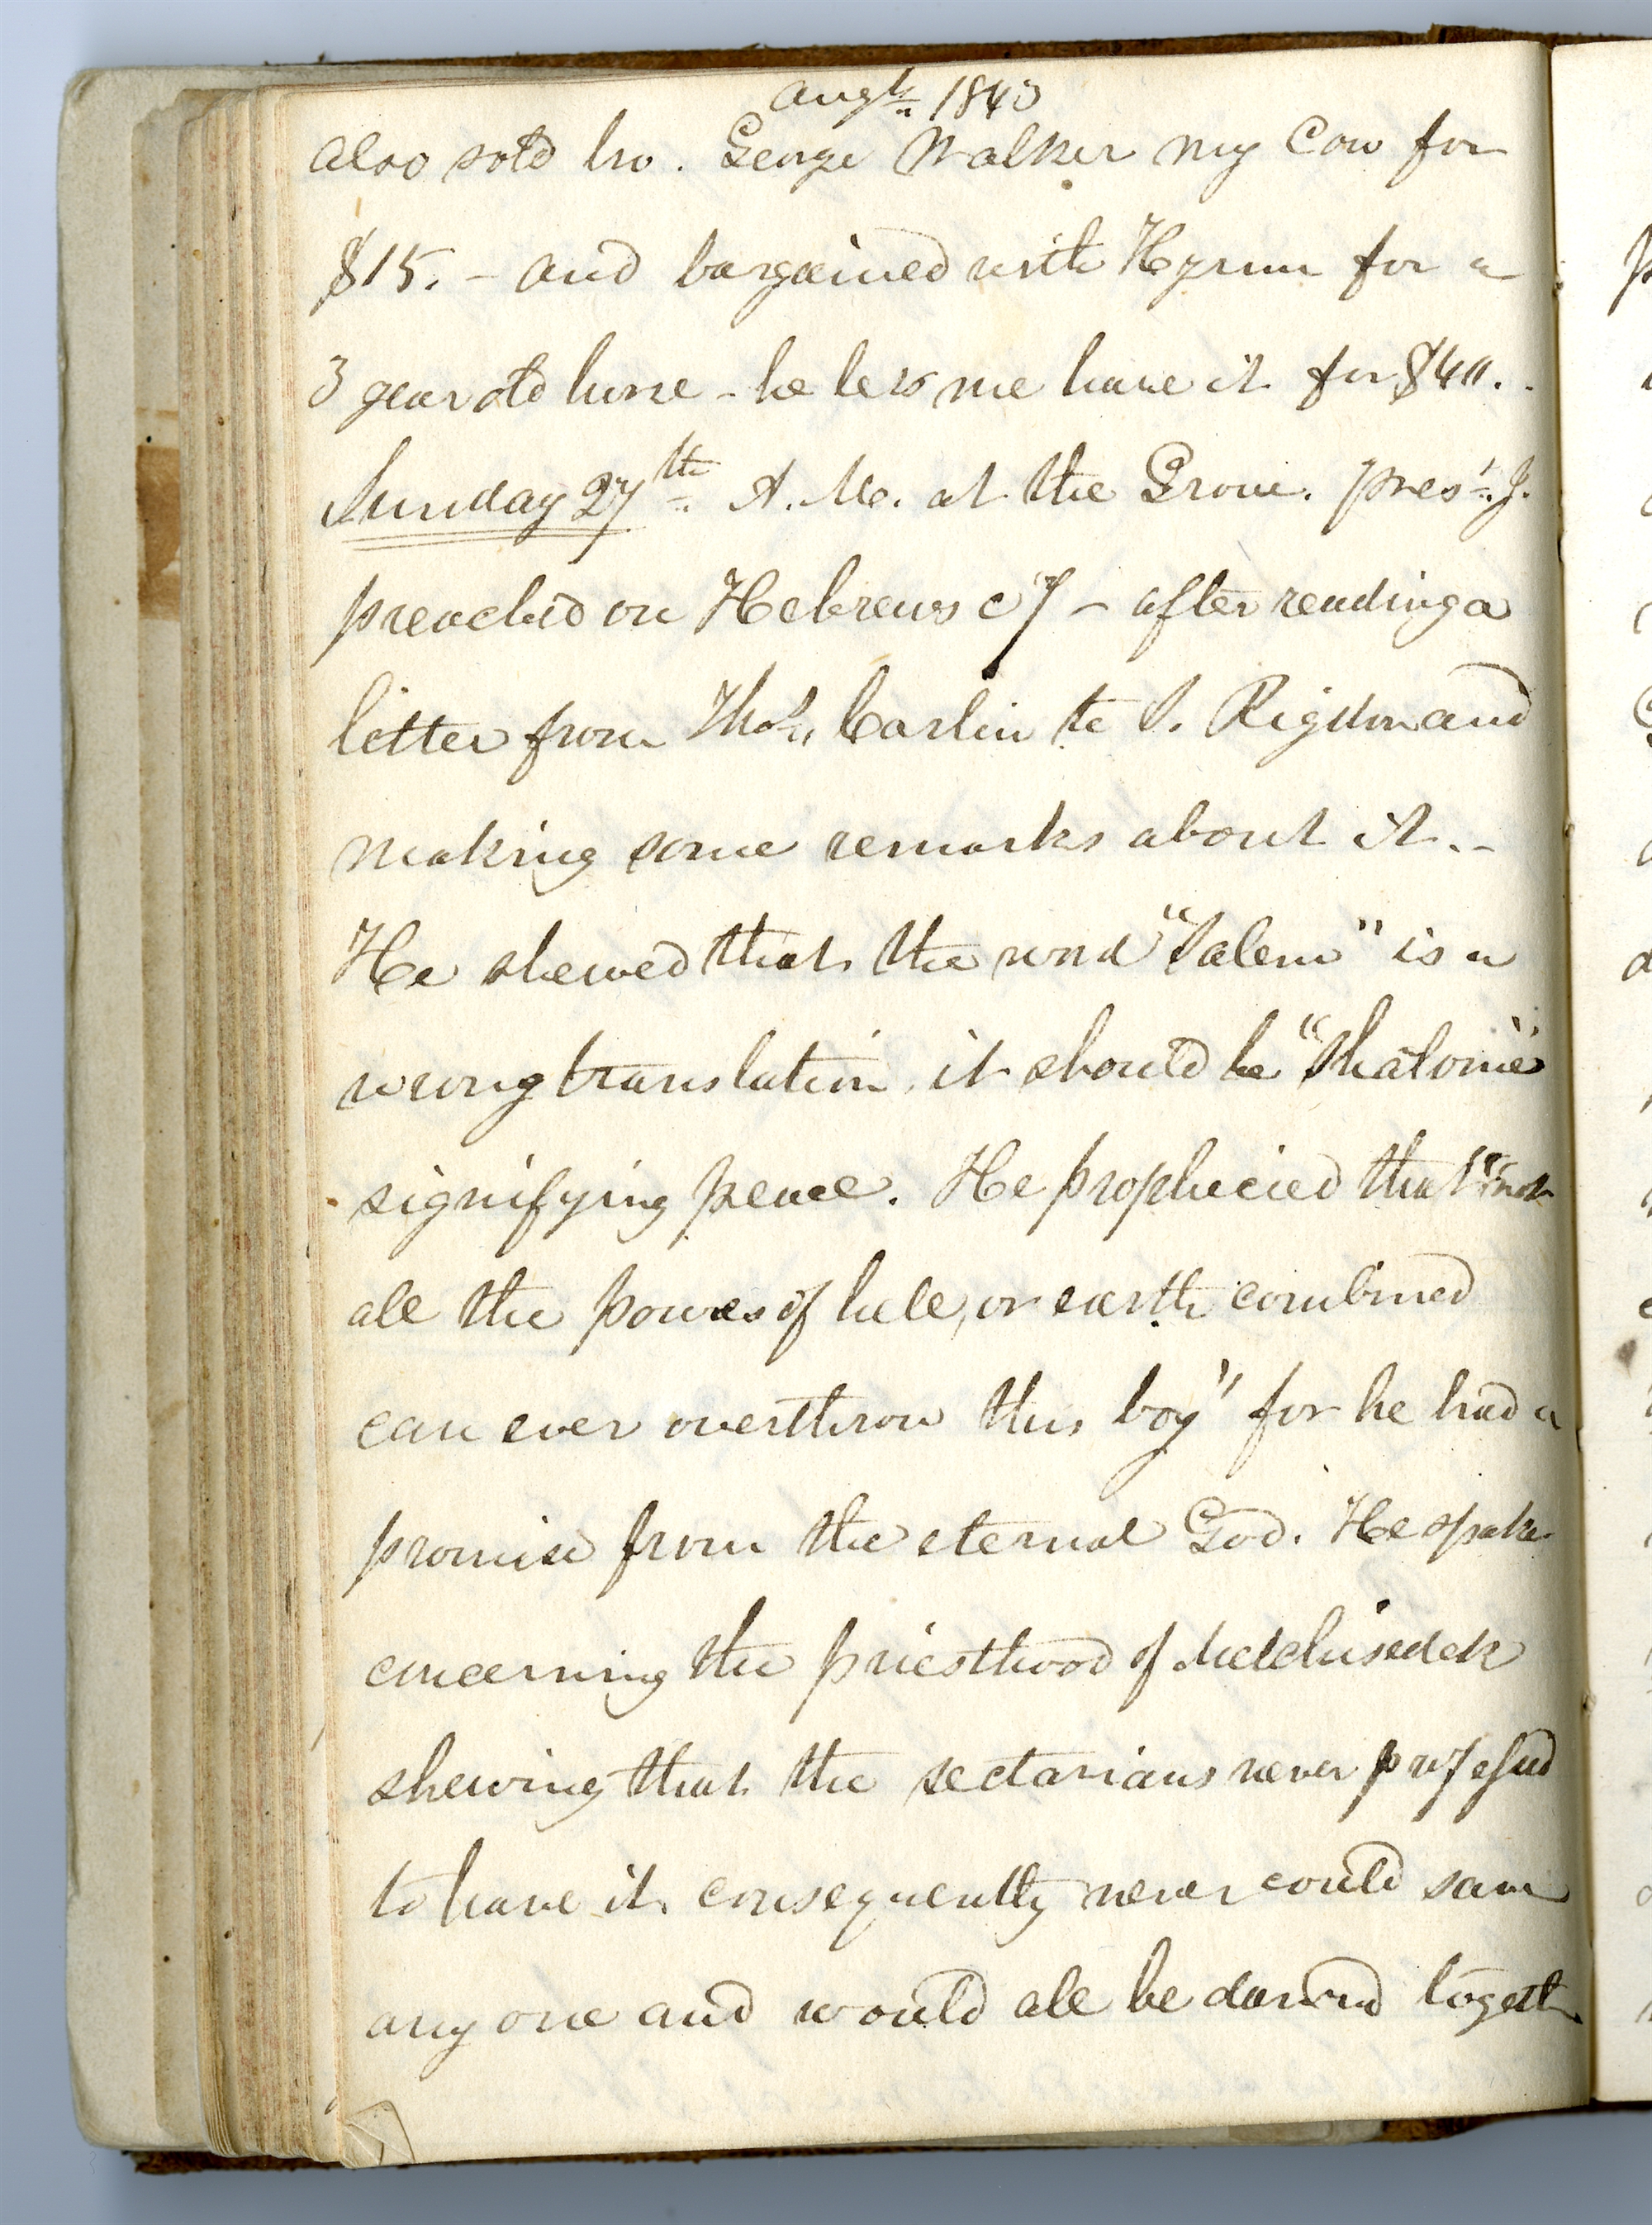 Augt. 1843
also sold bro. George Walker my Cow for
$15. – and bargained with Hyrum for a
3 year old horse – he lets me have it for $40. -
Sunday 27th. A. M. at the Grove. prest. J.
preached on Hebrews c 7 – after reading a
letter from Thos. Carlin to S. Rigdon and
making some remarks about it. –
He shewed that the word "Salem" is a
wrong translation, it should be "Shalome"
signifying peace. He prophecied that "not
all the powers of hell, or earth combined
can ever overthrow this boy" for he had a
promise from the eternal God. He spake
concerning the priesthood of Melchisedek
shewing that the sectarians never professed
to have it, consequently never could save
any one and would all be damned togeth